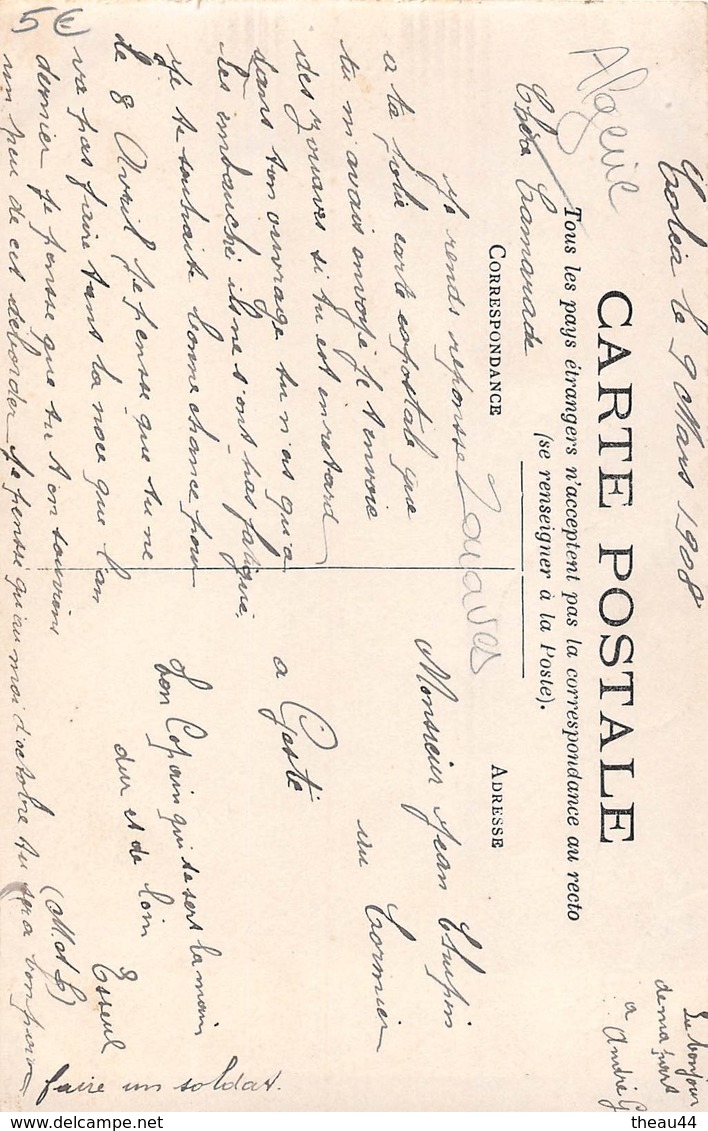 5€
Algérie
Coléa le 9 Mars 1908
CARTE POSTALE
Tous les pays étrangers n'acceptent pas la correspondance au recto
(se renseigner à la Poste).
CORRESPONDANCE
ADRESSE
Zouaves
Chère Camarade
Je rends reponsse
a ta jolie carte copostale que
tu m'avais envoyé je t envoie
des zouaves si tu est en retard
dans ton ouvrage tu n'as qu'a
les imbauché ils ne s ont pas fatigué,
Je te souhaite bonne chance pour
le 8 Avril je pense que tu ne
va pas faire tant la noce que l'an
dernier je pensse que tu t on souviens
un peu de cet deborder je pensse qu'au moi d'octobre tu sera bon pour
faire un soldat.
Monsieur Jean
au Cormier
a Gesté
Ton Copain qui te sert la main
dur et de loin
Esseul
(M et L)
Le bonjour
de ma part
a André G
theau44